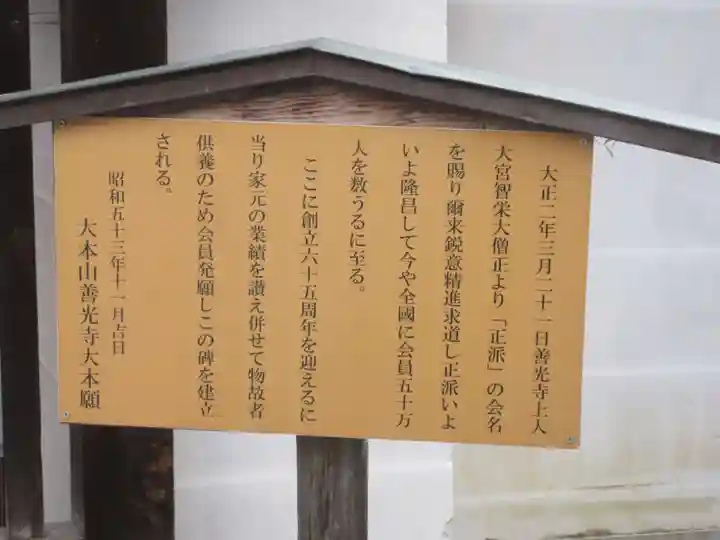 大正二年三月二十一日善光寺上人
大宮智栄大僧正より「正派」の会名
を賜り爾来鋭意精進求道し正派いよ
いよ隆昌して今や全國に会員五十万
人を数うるに至る。
ここに創立六十五周年を迎えるに
当り家元の業績を讃え併せて物故者
供養のため会員発願しこの碑を建立
される。
昭和五十三年十一月吉日
大本山善光寺大本願